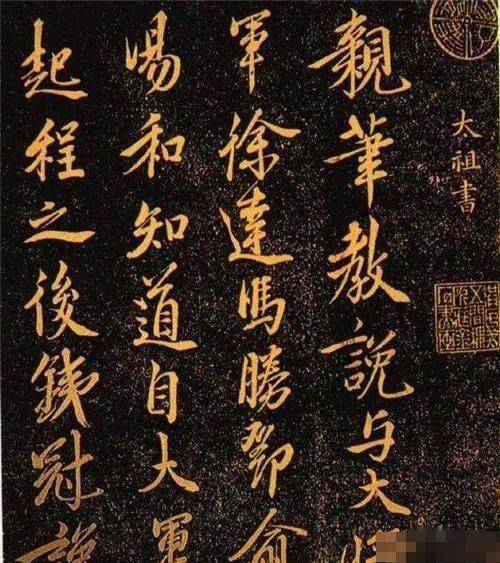 太祖書
親筆教說与大
軍徐達馮勝鄧俞
湯和知道自大軍
起程之後鉄冠